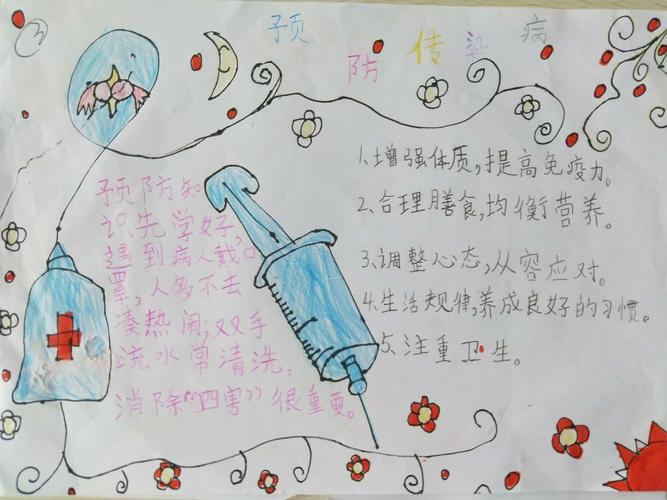 预防传染病
预防知
识先学好,
遇到病人戴口
罩,人多不去
凑热闹;双手
流水常清洗,
消除“四害”很重要。
1、增强体质,提高免疫力。
2、合理膳食,均衡营养。
3、调整心态,从容应对。
4、生活规律,养成良好的习惯。
5、注重卫生。